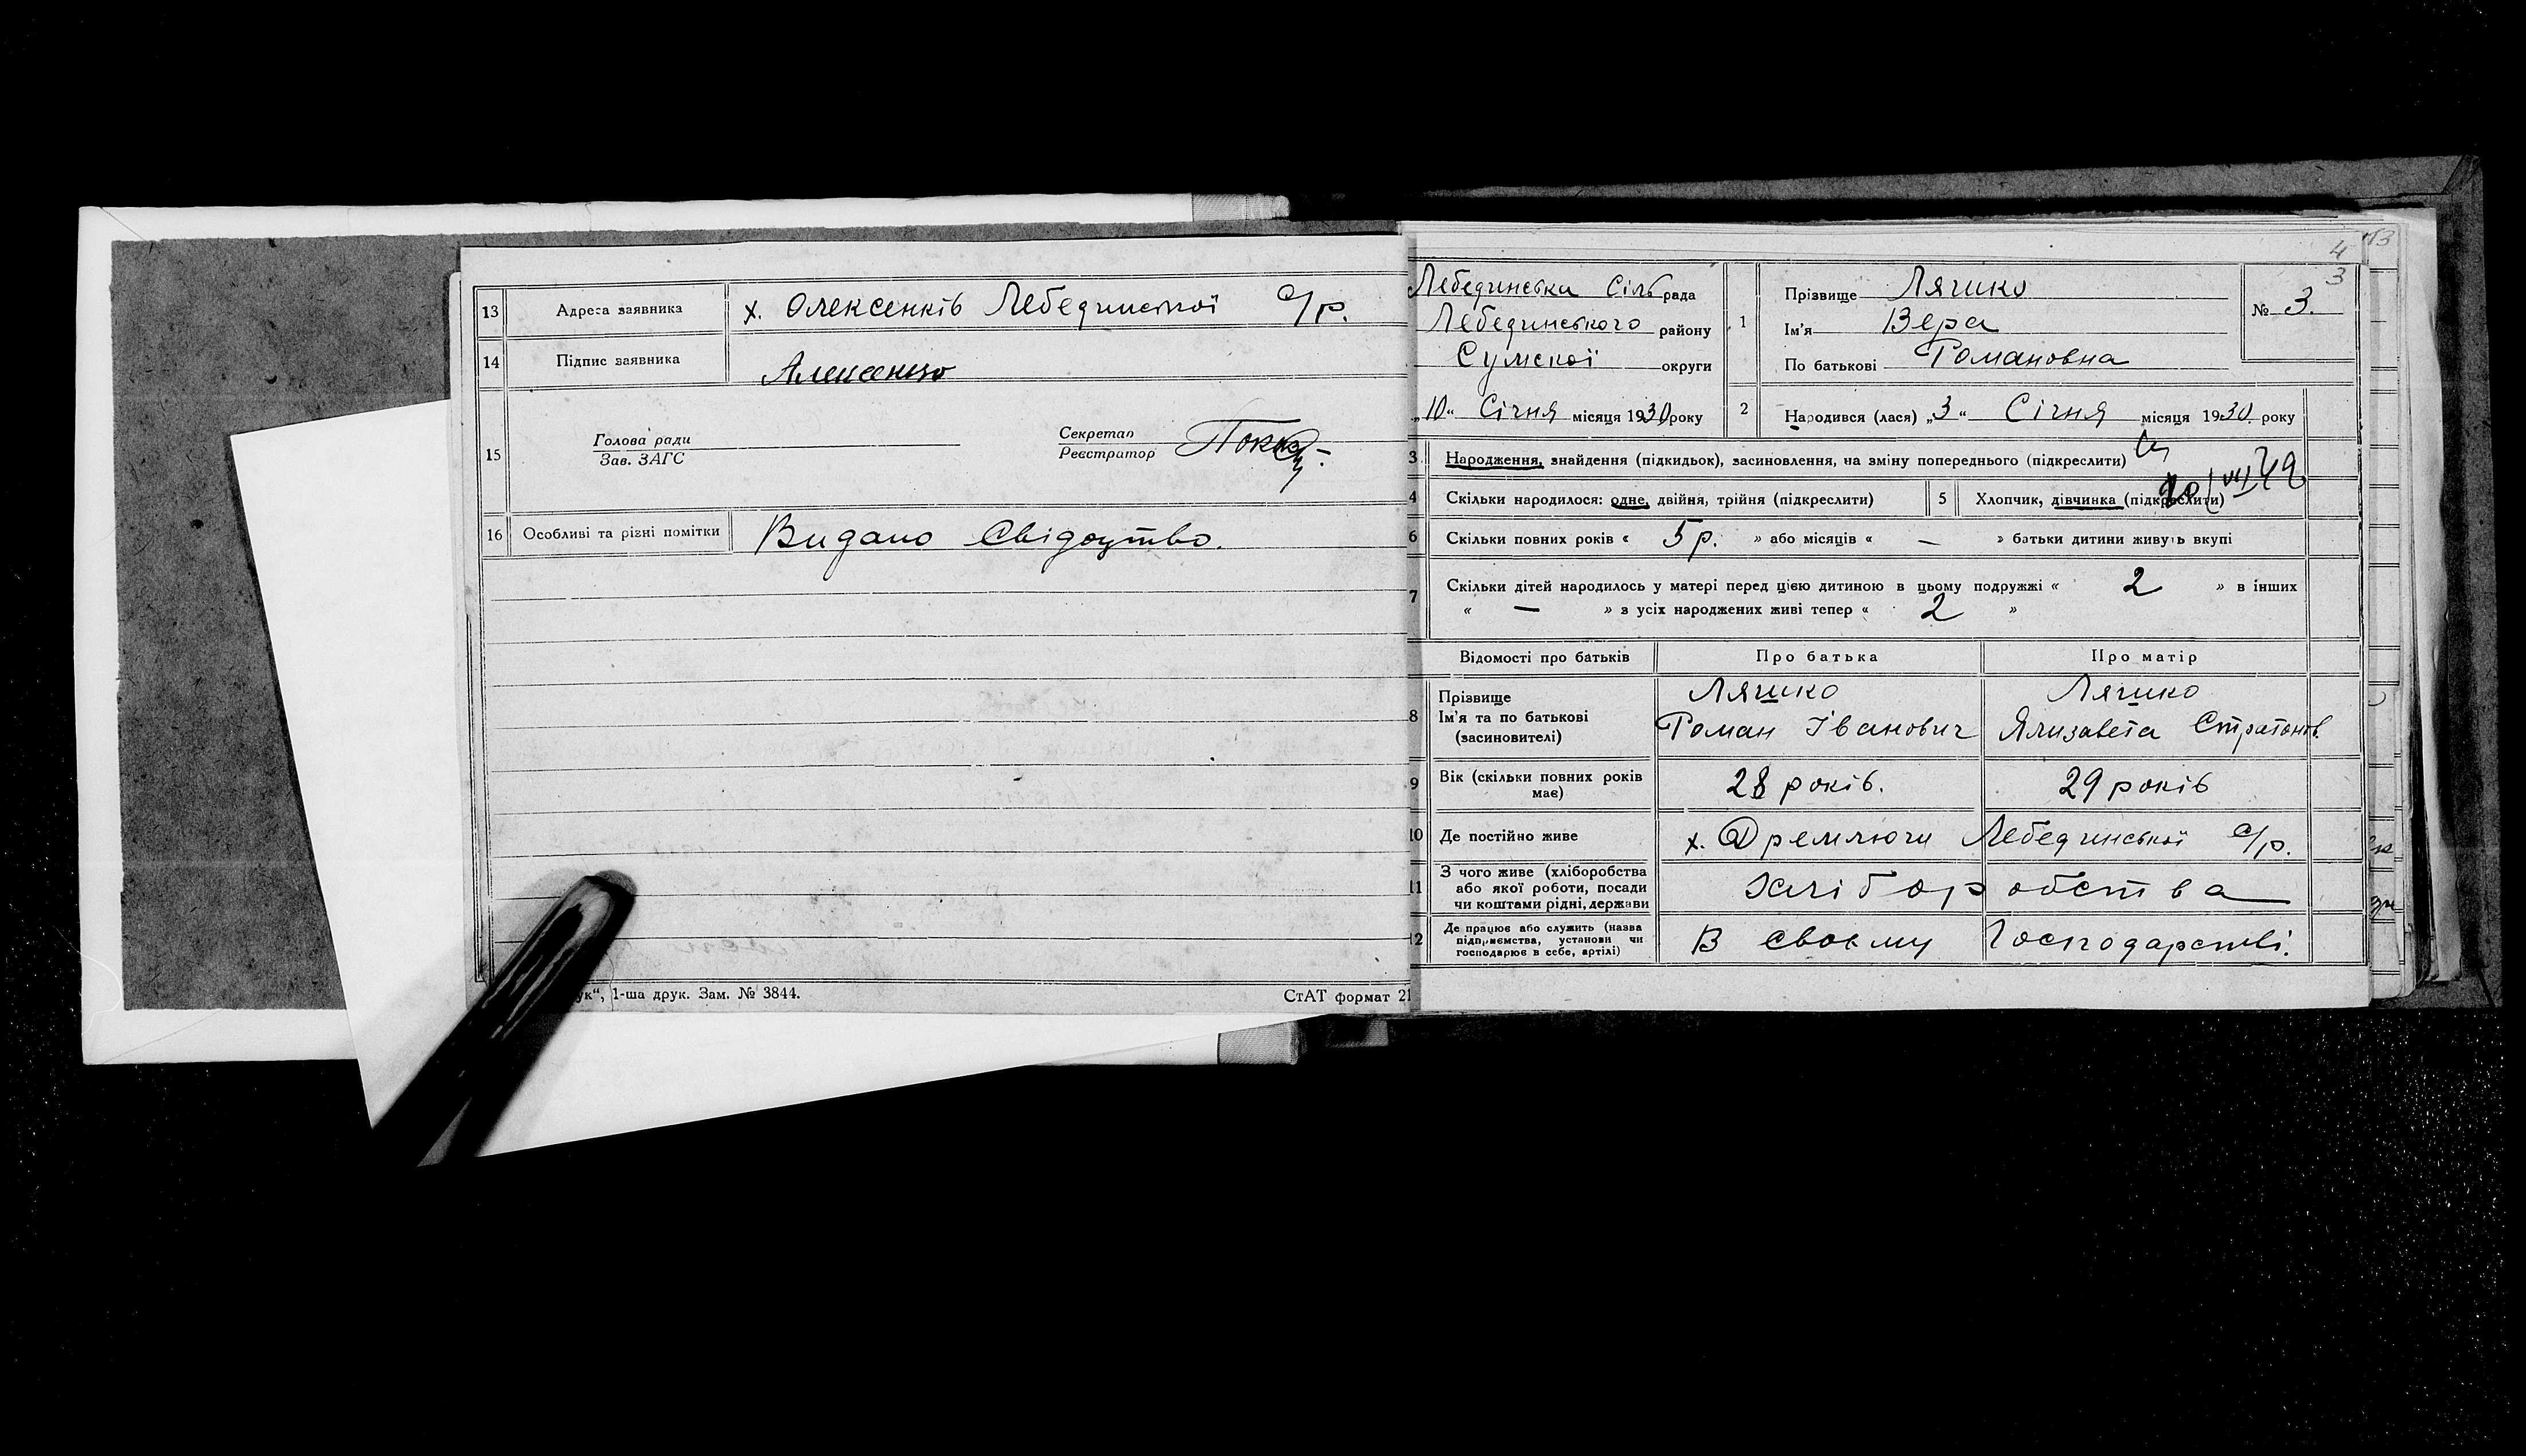 13 Адреса заявника х. Олексенків Лебединської с/р.
14 Підпис заявника Алексенко
15 Голова ради
Зав. ЗАГС
Секретар
Реєстратор
16 Особливі та різні помітки Видано Свідоцтво.
1-ша друк. Зам. № 3844.
СтАТ формат 21
4
3
Лебединська Сільрада
Лебединського району
Сумскої округи
„10“ Січня місяця 1930 року
1 Прізвище Ляшко
Ім'я Вера
По батькові Романовна
№ 3.
2 Народився (лася) „3“ Січня місяця 1930. року
3 Народження, знайдення (підкидьок), засиновлення, на зміну попереднього (підкреслити)
4 Скільки народилося: одне, двійня, трійня (підкреслити)
5 Хлопчик, дівчинка (підкреслити)
6 Скільки повних років « 5 р. » або місяців « — » батьки дитини живуть вкупі
7 Скільки дітей народилось у матері перед цією дитиною в цьому подружжі « 2 » в інших
« — » з усіх народжених живі тепер « 2 »
Відомості про батьків Про батька Про матір
8 Прізвище Ляшко Ляшко
Ім'я та по батькові Роман Іванович Ялизавета Стратонов.
(засиновителі)
9 Вік (скільки повних років має) 28 років. 29 років
10 Де постійно живе х. Дремлюги Лебединської с/р.
11 З чого живе (хліборобства
або якої роботи, посади
чи коштами рідні, держави
хліборобства
12 Де працює або служить (назва
підприємства, установи чи
господарює в себе, артілі)
В своєму Господарстві.